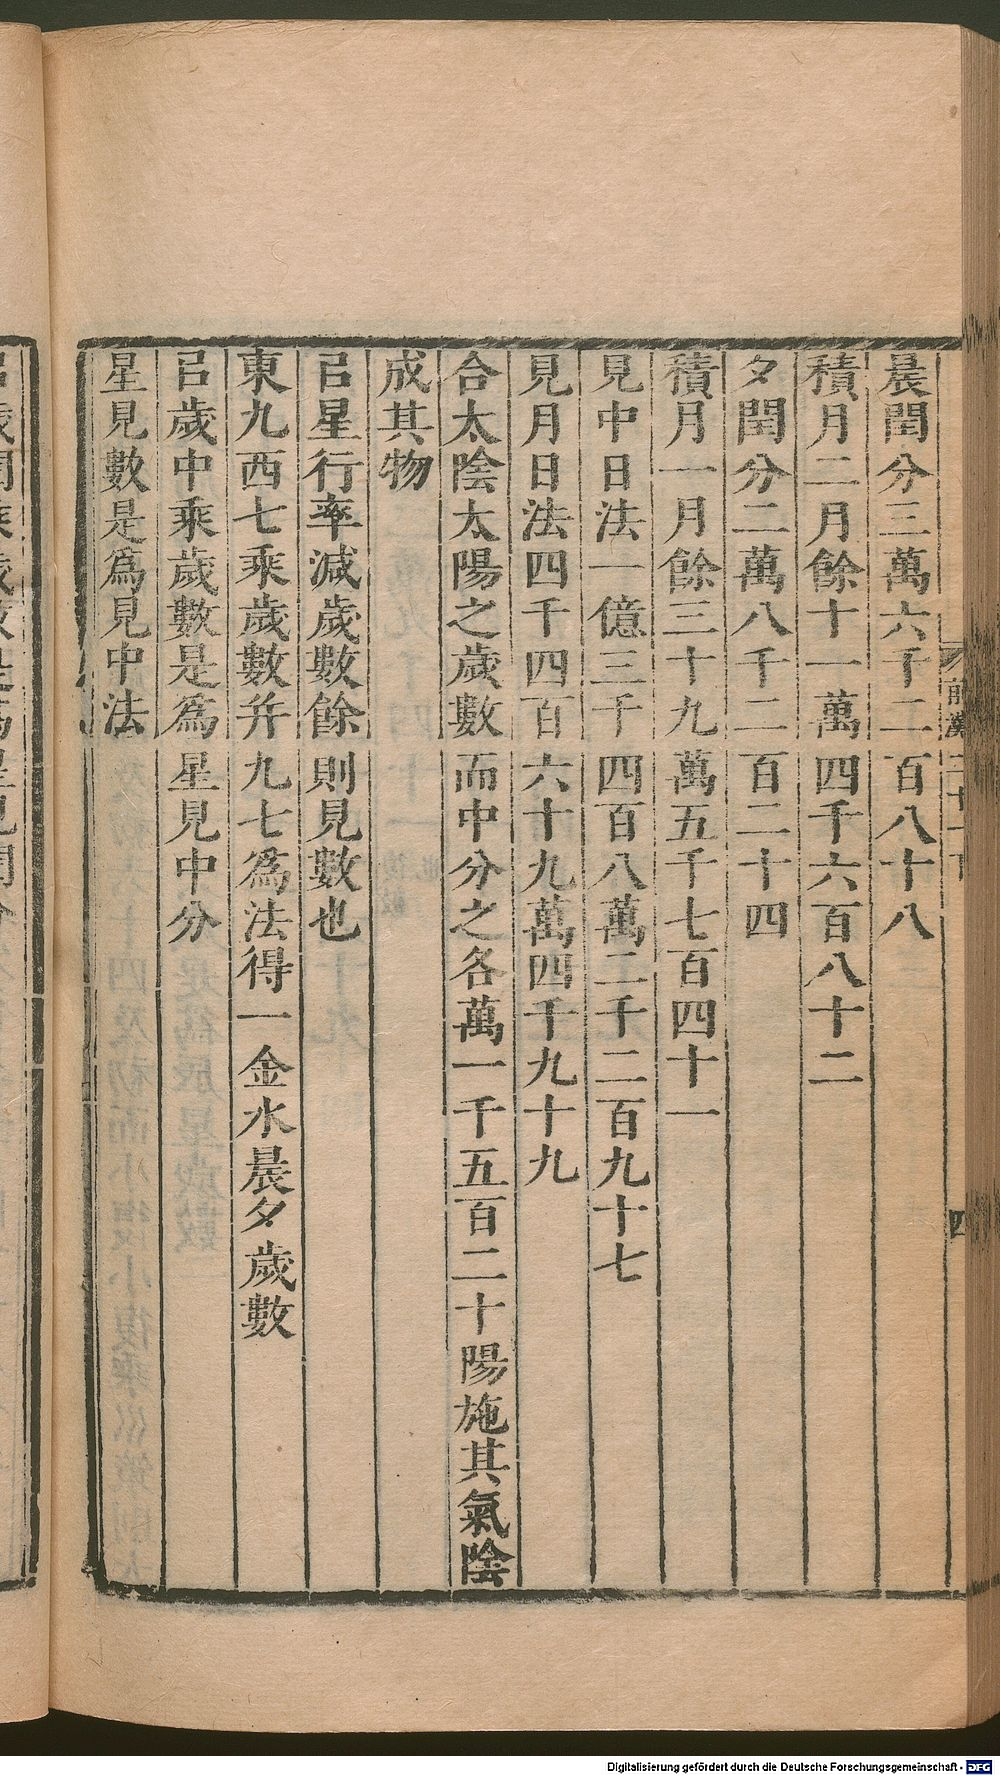 晨閏分三萬六千二百八十八
積月二月餘十一萬四千六百八十二
夕閏分二萬八千二百二十四
積月一月餘三十九萬五千七百四十一
見中日法一億三千四百八萬二千二百九十七
見月日法四千四百六十九萬四千九十九
合太陰太陽之歲數而中分之各萬一千五百二十陽施其氣陰
成其物
㠯星行率減歲數餘則見數也
東九西七乘歲數并九七爲法得一金水晨夕歲數
㠯歲中乘歲數是爲星見中分
星見數是爲見中法
前漢二十一下
四
Digitalisierung gefördert durch die Deutsche Forschungsgemeinschaft - DFG